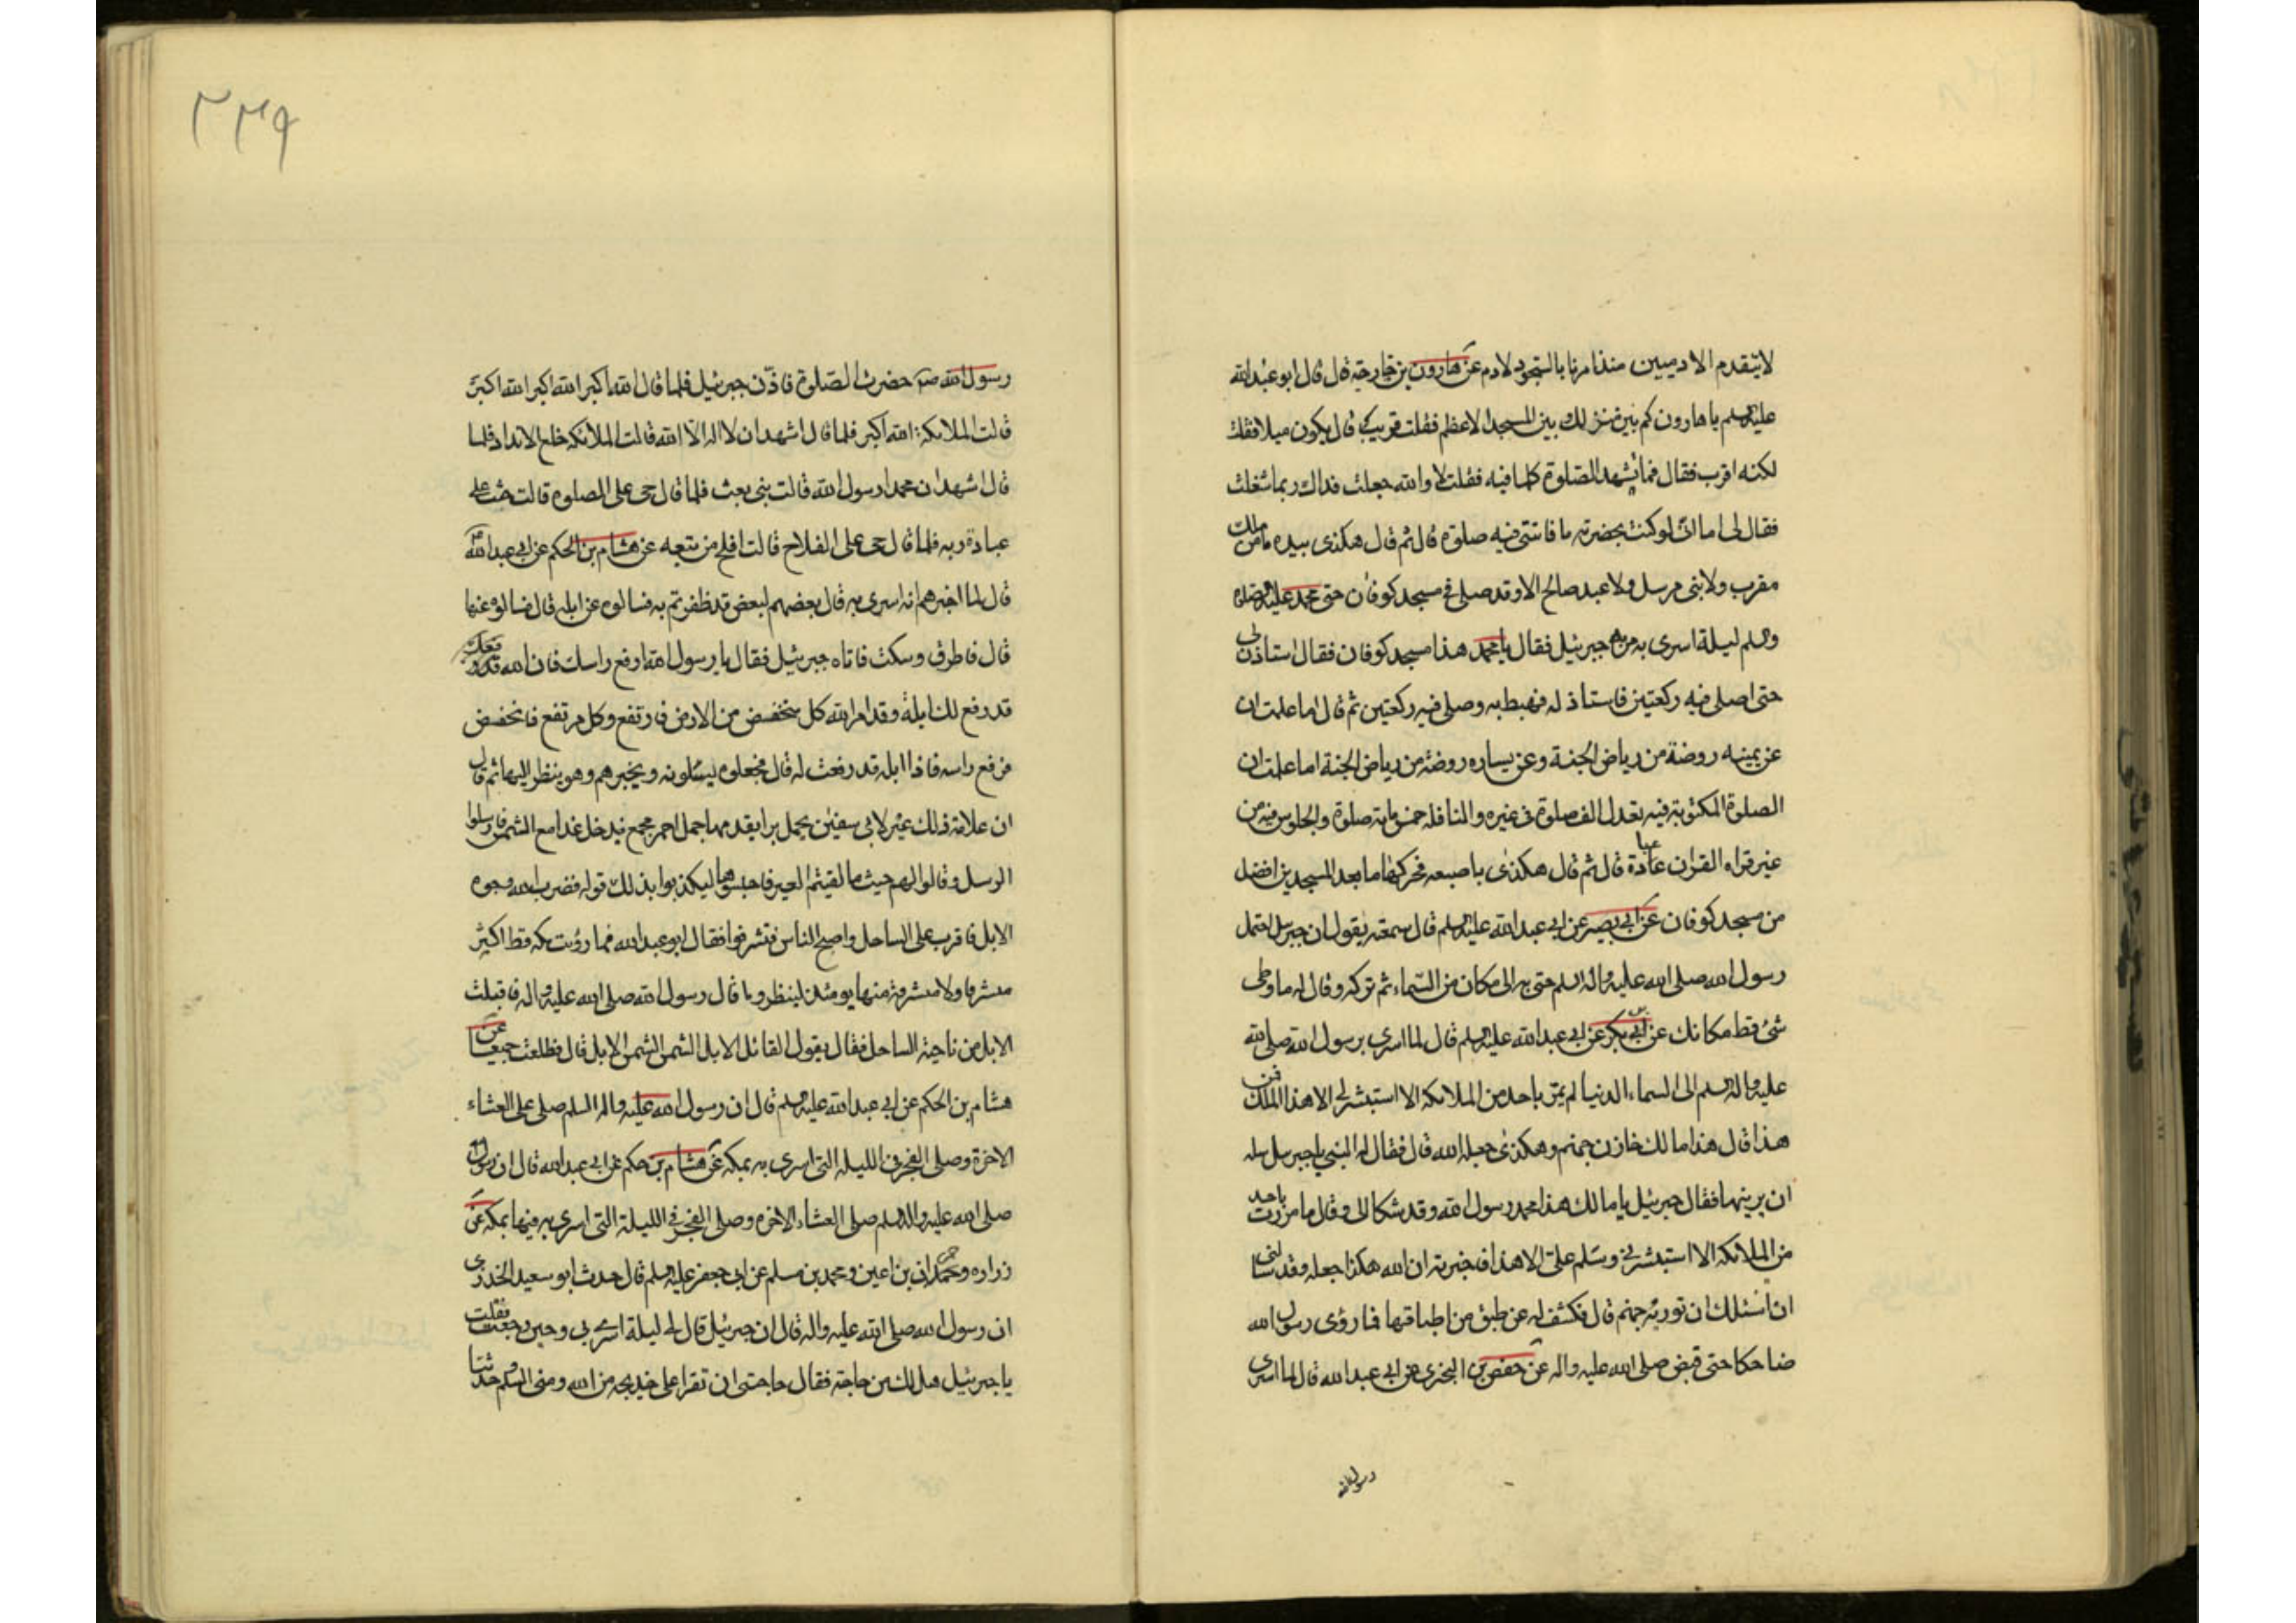 لا يتقدم الادميين منذ امرنا بالسجود لادم عن هارون بن خارجة قال قال ابو عبد الله
عليه السلم يا هارون كم بين منزلك وبين المسجد الاعظم فقلت قريب قال يكون ميلا فقلت
لكنه اقرب فقال فما تشهد الصلوة كلها فيه فقلت لا والله جعلت فداك ربما شغلت
فقال لى اما انى لو كنت بحضرته ما فاتتنى فيه صلوة قال ثم قال هكذى بيده ما من ملك
مقرب ولا نبى مرسل ولا عبد صالح الا وقد صلى فى مسجد كوفان حتى محمد عليه
وسلم ليلة اسرى به مر به جبرئيل فقال يا محمد هذا مسجد كوفان فقال استاذن لى
حتى اصلى فيه ركعتين فاستاذن له فهبط به وصلى فيه ركعتين ثم قال اما علمت ان
عن يمينه روضة من رياض الجنة وعن يساره روضة من رياض الجنة اما علمت ان
الصلوة المكتوبة فيه تعدل الف صلوة فى غيره والنافلة خمس ماية صلوة والجلوس فيه من
غير قراه القران عبادة قال ثم قال هكذى باصبعه فحركها ما بعد المسجدين افضل
من مسجد كوفان عن ابى بصير عن ابى عبد الله عليه السلم قال سمعته يقول ان جبرئيل احتمل
رسول الله صلى الله عليه واله السلم حتى به الى مكان من السماء ثم تركه وقال له ما وطى
شئ قط مكانك عن ابى بكر عن ابى عبد الله عليه السلم قال لما اسرى برسول الله صلى الله
عليه واله وسلم الى السماء الدنيا لم يمر باحد من الملائكة الا استبشر له الا هذا الملك فمن
هذا قال هذا مالك خازن جهنم وهكذى جعله الله قال فقال له النبى يا جبرئيل سله
ان يرينها فقال جبرئيل يا مالك هذا محمد رسول الله وقد شكا الى وقال ما مررت باحد
من الملائكة الا استبشر لى وسلم على الا هذا فاخبرته ان الله هكذا جعله وقد سالنى
ان اسئلك ان توريه جهنم قال فكشف له عن طبق من اطباقها فما رؤى رسول الله
ضاحكا حتى قبض صلى الله عليه واله عن حفص بن البخترى عن ابى عبد الله قال لما اسرى
رسول الله
٢٣٩
رسول الله ص حضرت الصلوة فاذن جبرئيل فلما قال الله اكبر الله اكبر الله اكبر
قالت الملائكة الله اكبر فلما قال اشهد ان لا اله الا الله قالت الملائكة خلع الانداد فلما
قال اشهد ان محمدا رسول الله قالت نبى بعث فلما قال حى على الصلوه قالت حث على
عبادة ربه فلما قال حى على الفلاح قالت افلح من تبعه عن هشام بن الحكم عن ابى عبد الله
قال لما اخبرهم انه اسرى به قال بعضهم لبعض قد ظفرتم به فسالوه عن ايله قال فسالوه عنها
قال فاطرق وسكت فاتاه جبرئيل فقال يا رسول الله ارفع راسك فان الله
قد رفع لك ايله وقد امر الله كل منخفض من الارض فارتفع وكل مرتفع فانخفض
فرفع راسه فاذا ايله قد رفعت له قال فجعلوه يسئلونه ويخبرهم وهو ينظر اليها ثم قال
ان علامة ذلك عير لابى سفين يحمل برا يقدمها جمل احمر مجمع تدخل غدا مع الشمس فارسلوا
الرسل وقالوا لهم حيث ما لقيتم العير فاحبسوها ليكذبوا بذلك قوله فضرب الله وجوه
الابل فاقرب على الساحل واصبح الناس فتشرفوا فقال ابو عبد الله فما رؤيت مكه قط اكثر
مشرفا ولا مشرفة منها يومئذ لينظروا ما قال رسول الله صلى الله عليه واله فاقبلت
الابل من ناحية الساحل فقال يقول القائل الابل الشمس الشمس الابل قال فطلعت جميعا عن
هشام بن الحكم عن ابى عبد الله عليه السلم قال ان رسول الله عليه واله السلم صلى العشاء
الاخرة وصلى الفجر فى الليله التى اسرى به بمكه عن هشام بن حكم عن ابى عبد الله قال ان رسول الله
صلى الله عليه واله السلم صلى العشاء الاخره وصلى الفجر فى الليلة التى اسرى به فيها بمكه عن
زراره وحمران بن اعين ومحمد بن مسلم عن ابى جعفر عليه السلم قال حدث ابو سعيد الخدرى
ان رسول الله صلى الله عليه واله قال ان جبرئيل قال لى ليلة اسرى بى وحين رجعت فقلت
يا جبرئيل هل لك من حاجة فقال حاجتى ان تقرا على خديجه من الله ومنى السلم وحدثنا